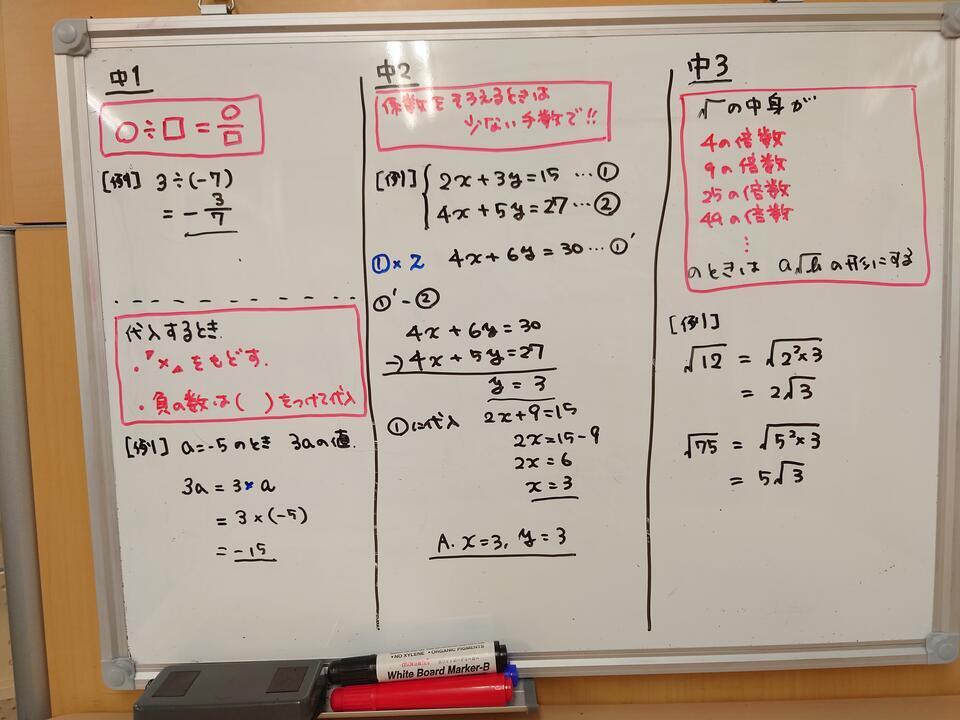 中1
○÷□=○/□
[例] 3÷(-7)
= -3/7
代入するとき
・『×』をもどす.
・負の数は( )をつけて代入
[例] a=-5のとき 3aの値.
3a = 3×a
= 3×(-5)
= -15
中2
係数をそろえるときは
少ない手数で!!
[例] { 2x+3y=15 …①
4x+5y=27 …②
①×2 4x+6y=30 …①'
①'-②
4x+6y=30
-) 4x+5y=27
y=3
①に代入 2x+9=15
2x=15-9
2x=6
x=3
A. x=3, y=3
中3
√の中身が
4の倍数
9の倍数
25の倍数
49の倍数
⋮
のときは a√b の形にする
[例]
√12 = √2²×3
= 2√3
√75 = √5²×3
= 5√3
・NO XYLENE ・ORGANIC PIGMENTS
White Board Marker-B